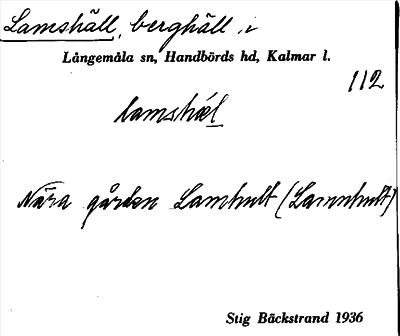 Lamshäll, berghäll i
Långemåla sn, Handbörds hd, Kalmar l.
112
lamshæl
Nära gården Lamhult (Lammhult)
Stig Bäckstrand 1936